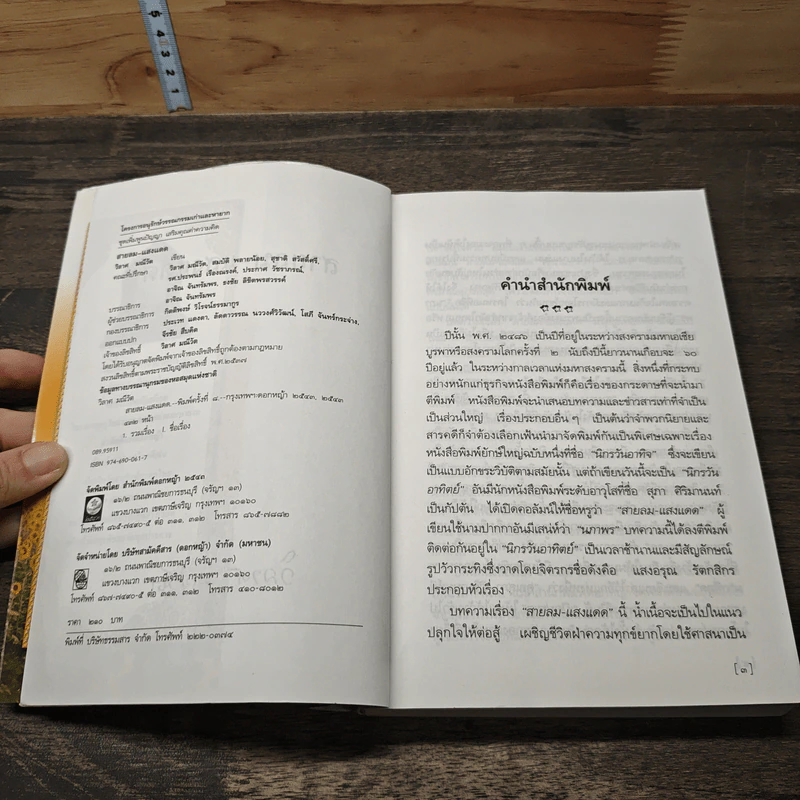 5 4 3 2 1
โครงการอนุรักษ์วรรณกรรมเก่าและหายาก
ชุดเพิ่มพูนปัญญา เสริมคุณค่าความคิด
สายลม-แสงแดด
วิลาศ มณีวัต เขียน
คณะที่ปรึกษา วิลาศ มณีวัต, สมบัติ พลายน้อย, สุชาติ สวัสดิ์ศรี,
รศ.ประพนธ์ เรืองณรงค์, ประกาศ วัชราภรณ์,
อาจิณ จันทรัมพร, ธงชัย ลิขิตพรสวรรค์
บรรณาธิการ อาจิณ จันทรัมพร
ผู้ช่วยบรรณาธิการ กิตติพงษ์ วิโรจน์ธรรมากูร
กองบรรณาธิการ ประเวท แดงดา, ลัดดาวรรณ นววงศ์วิวัฒน์, โสภี จันทร์กระจ่าง,
ออกแบบปก จีรชัย สืบคิด
เจ้าของลิขสิทธิ์ วิลาศ มณีวัต
โดยได้รับอนุญาตจัดพิมพ์จากเจ้าของลิขสิทธิ์ถูกต้องตามกฎหมาย
สงวนลิขสิทธิ์ตามพระราชบัญญัติลิขสิทธิ์ พ.ศ.๒๕๓๗
ข้อมูลทางบรรณานุกรมของหอสมุดแห่งชาติ
วิลาศ มณีวัต
สายลม-แสงแดด.--พิมพ์ครั้งที่ ๘.--กรุงเทพฯ:ดอกหญ้า ๒๕๔๓, ๒๕๔๓
หน้า
1. รวมเรื่อง I. ชื่อเรื่อง
089.95911
ISBN 974-690-061-7
จัดพิมพ์โดย สำนักพิมพ์ดอกหญ้า ๒๕๔๓
๑๖/๒ ถนนพาณิชยการธนบุรี (จรัญฯ ๑๓)
แขวงบางแวก เขตภาษีเจริญ กรุงเทพฯ ๑๐๑๖๐
โทรศัพท์ ๘๖๕-๗๔๙๐-๕ ต่อ ๓๑๑, ๓๑๒ โทรสาร ๘๖๕-๗๘๘๒
จัดจำหน่ายโดย บริษัทสามัคคีสาร (ดอกหญ้า) จำกัด (มหาชน)
๑๖/๒ ถนนพาณิชยการธนบุรี (จรัญฯ ๑๓)
แขวงบางแวก เขตภาษีเจริญ กรุงเทพฯ ๑๐๑๖๐
โทรศัพท์ ๘๖๗-๗๔๙๐-๕ ต่อ ๓๑๑, ๓๑๒ โทรสาร ๔๑๐-๘๐๑๒
ราคา ๒๑๐ บาท
พิมพ์ที่ บริษัทธรรมสาร จำกัด โทรศัพท์ ๒๒๒-๐๓๗๔
คำนำสำนักพิมพ์
ปีนั้น พ.ศ. ๒๔๘๖ เป็นปีที่อยู่ในระหว่างสงครามมหาเอเชีย
บูรพาหรือสงครามโลกครั้งที่ ๒ นับถึงปีนี้ยาวนานเกือบจะ ๖๐
ปีอยู่แล้ว ในระหว่างกาลเวลาแห่งมหาสงครามนี้ สิ่งหนึ่งที่กระทบ
อย่างหนักแก่ธุรกิจหนังสือพิมพ์ก็คือเรื่องของกระดาษที่จะนำมา
ตีพิมพ์ หนังสือพิมพ์จะนำเสนอบทความและข่าวสารเท่าที่จำเป็น
เป็นส่วนใหญ่ เรื่องประกอบอื่น ๆ เป็นต้นว่าจำพวกนิยายและ
สารคดีก็จำต้องเลือกเฟ้นนำมาจัดพิมพ์กันเป็นพิเศษเฉพาะเรื่อง
หนังสือพิมพ์ยักษ์ใหญ่ฉบับหนึ่งที่ชื่อ “นิกรวันอาทิจ” ซึ่งจะเขียน
เป็นแบบอักขระวิบัติตามสมัยนั้น แต่ถ้าเขียนวันนี้จะเป็น “นิกรวัน
อาทิตย์” อันมีนักหนังสือพิมพ์ระดับอาวุโสที่ชื่อ สุภา ศิริมานนท์
เป็นกัปตัน ได้เปิดคอลัมน์ให้ชื่อหรูว่า “สายลม-แสงแดด” ผู้
เขียนใช้นามปากกาอันมีเสน่ห์ว่า “นภาพร” บทความนี้ได้ลงตีพิมพ์
ติดต่อกันอยู่ใน “นิกรวันอาทิตย์” เป็นเวลาช้านานและมีสัญลักษณ์
รูปวัวกระทิงซึ่งวาดโดยจิตรกรชื่อดังคือ แสงอรุณ รัตกสิกร
ประกอบหัวเรื่อง
บทความเรื่อง “สายลม-แสงแดด” นี้ น้ำเนื้อจะเป็นไปในแนว
ปลุกใจให้ต่อสู้ เผชิญชีวิตฝ่าความทุกข์ยากโดยใช้ศาสนาเป็น
[๓]